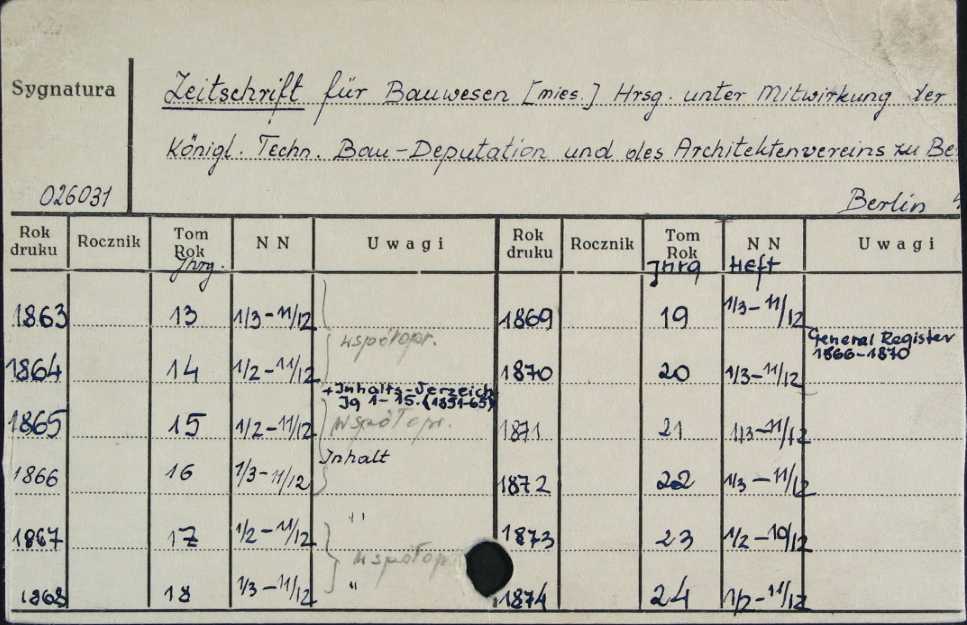 Sygnatura
Zeitschrift für Bauwesen [mies.] Hrsg. unter Mitwirkung der
Königl. Techn. Bau-Deputation und des Architektenvereins zu Be
026031
Berlin
Rok druku Rocznik Tom Rok Jhrg. NN Uwagi Rok druku Rocznik Tom Rok Jhrg NN Heft Uwagi
1863 13 1/3-11/12 1869 19 1/3-11/12
współopr. General Register
1866-1870
1864 14 1/2-11/12 1870 20 1/3-11/12
+Inhalts-Verzeich
Jg 1-15. (1851-65)
1865 15 1/2-11/12 współopr. 1871 21 1/3-11/12
Inhalt
1866 16 1/3-11/12 1872 22 1/3-11/12
"
1867 17 1/2-11/12 1873 23 1/2-10/12
współopr
1868 18 1/3-11/12 " 1874 24 1/2-11/12